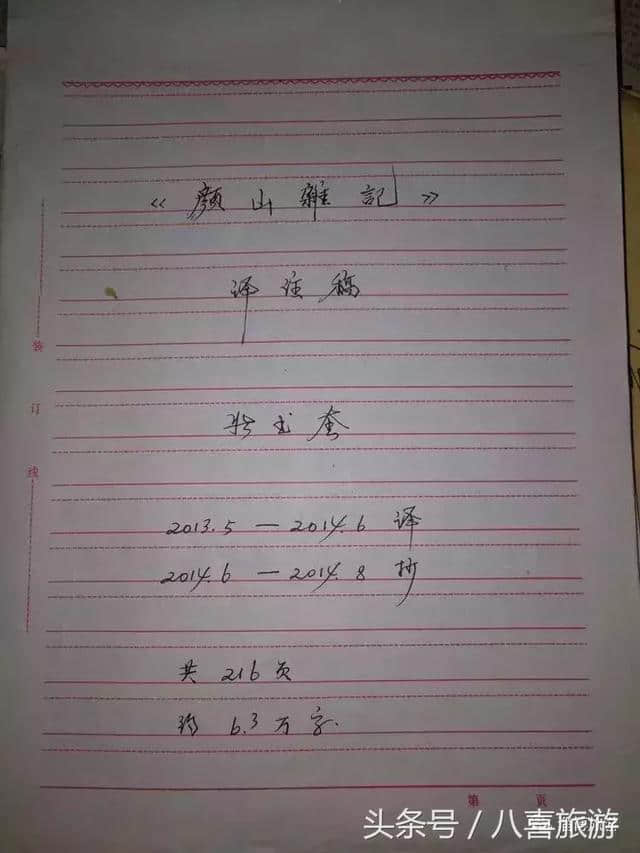 《颜山雜記》
译注稿
奎
2013.5 — 2014.6 译
2014.6 — 2014.8 抄
共 216 页
约 6.3 万字.
装
订
线
第 页
头条号 / 八喜旅游